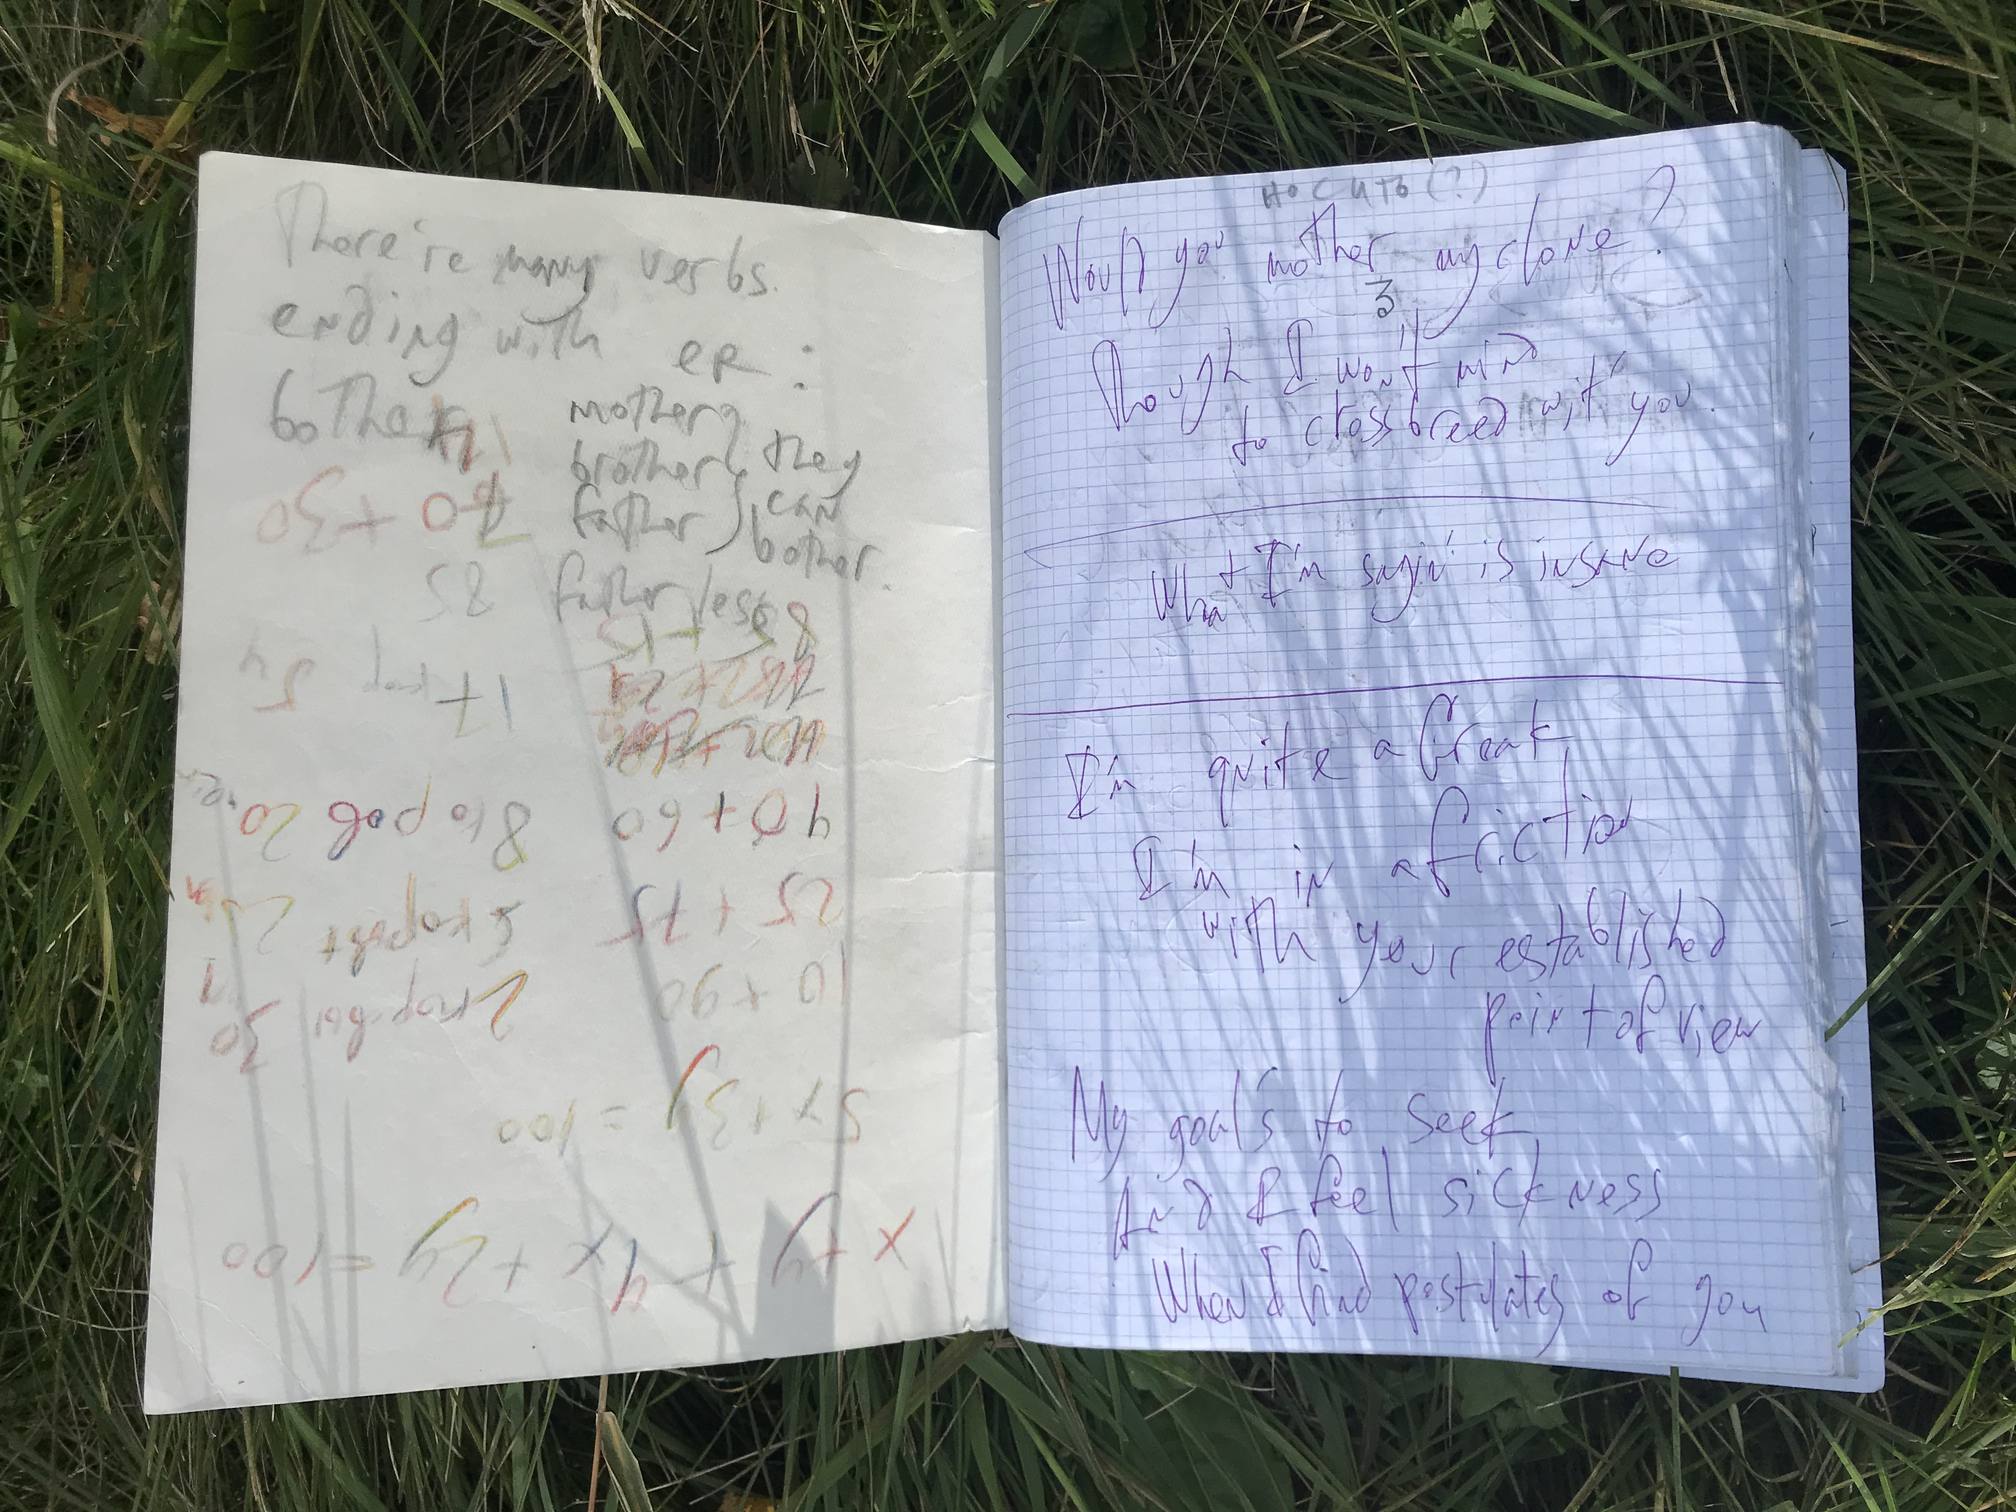 There're many verbs
ending with eR :
bother
mother
brother
father
they
can
bother.
fatherless
x + y + 4x + 2y = 100
5x + 3y = 100
10 + 90
25 + 75
40 + 60
85 + 15
2 коровы 30
5 коров
810 роб 20
17 кор 54
85
70 + 30
носить (?)
Would you mother my clone?
3
Though I won't mind
to crossbreed wit' you.
What I'm sayin' is insane
I'm quite a freak,
I'm in a friction
with your established
point of view
My goal's to seek,
And I feel sickness
When I find postulates of you